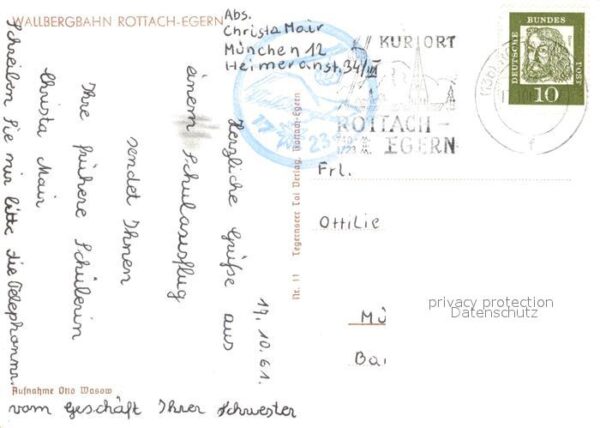 WALLBERGBAHN ROTTACH-EGERN
Abs.
Christa Mair
München 12
Heimeranst. 34/III
KURORT
ROTTACH-
EGERN
DEUTSCHE BUNDES POST
10
17. 10. 61.
Herzliche Grüße aus
einem Schulausflug
sendet Ihnen
Ihre frühere Schülerin
Christa Mair
Schreiben Sie mir bitte die Telephonnr.
vom Geschäft Ihrer Schwester
Frl.
Ottilie
Mü
Bai
privacy protection
Datenschutz
Nr. 11 Tegernseer Tal Verlag, Rottach-Egern
Aufnahme Otto Wasow